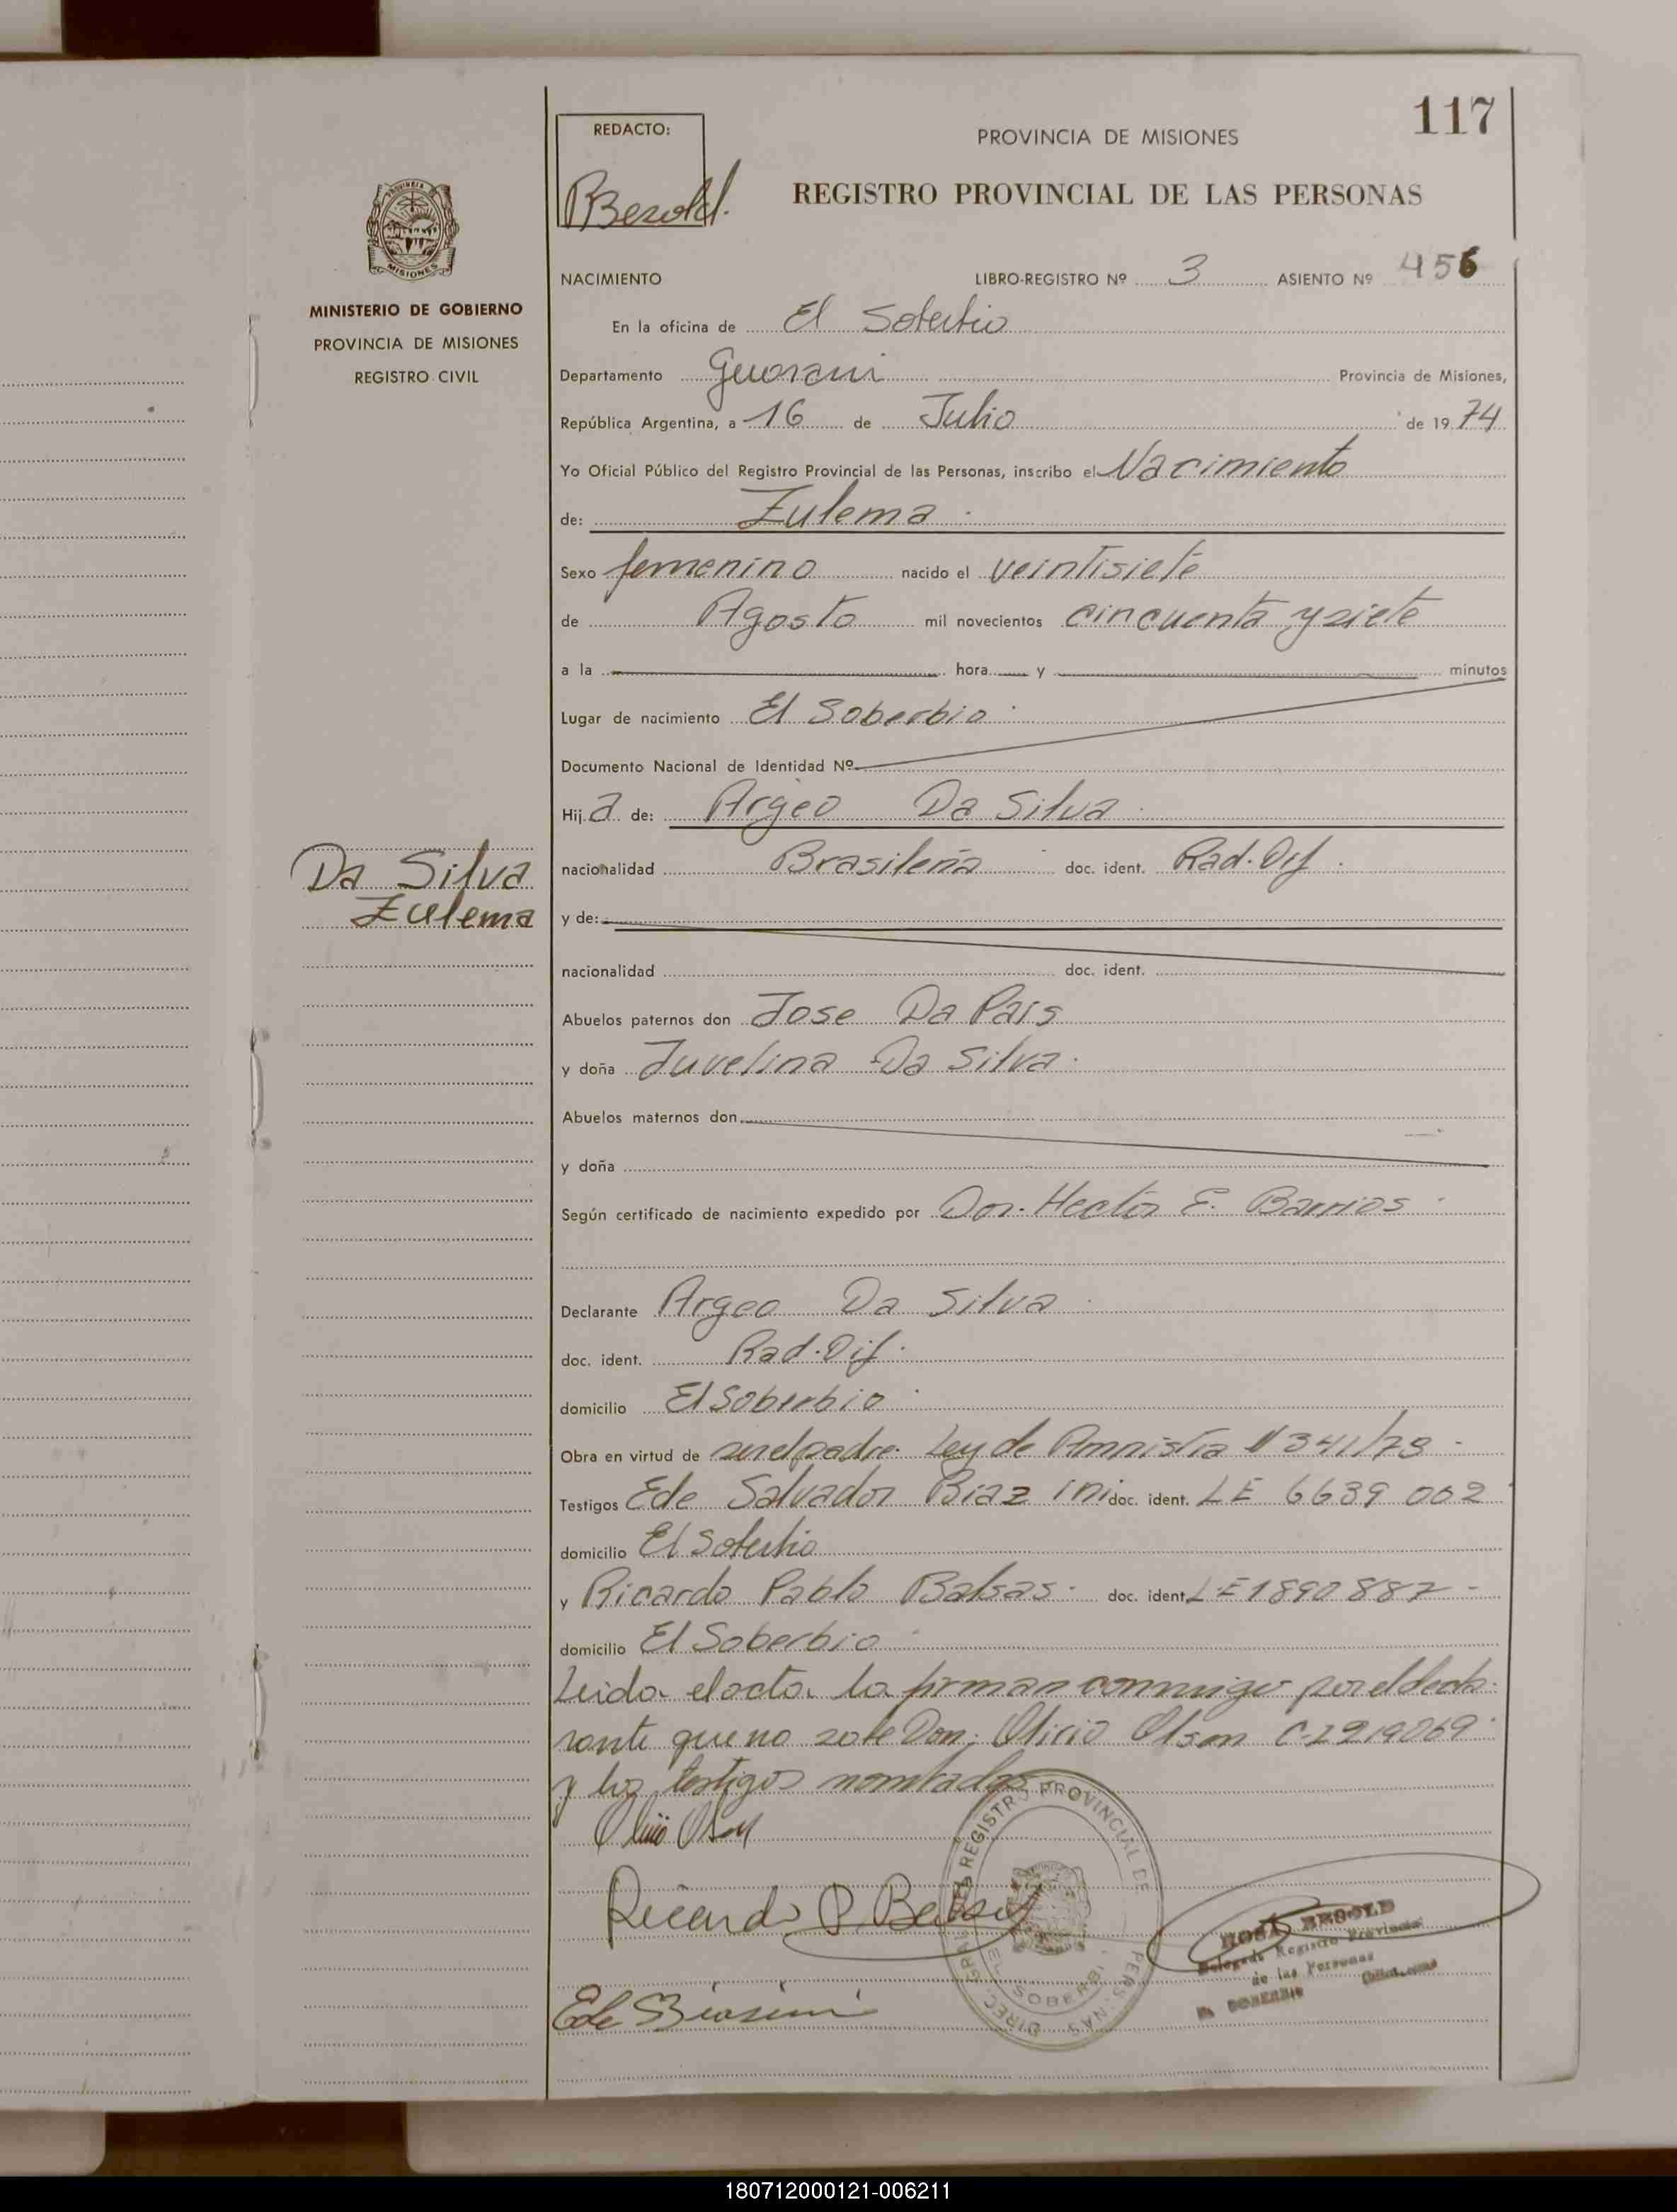 117
REDACTO:
PROVINCIA DE MISIONES
REGISTRO PROVINCIAL DE LAS PERSONAS
MISIONES
MINISTERIO DE GOBIERNO
PROVINCIA DE MISIONES
REGISTRO CIVIL
NACIMIENTO LIBRO-REGISTRO Nº 3 ASIENTO Nº 456
En la oficina de El Soberbio
Departamento Guarani Provincia de Misiones,
República Argentina, a 16 de Julio de 1974
Yo Oficial Público del Registro Provincial de las Personas, inscribo el Nacimiento
de: Zulema
Sexo femenino nacido el veintisiete
de Agosto mil novecientos cincuenta y siete
a la hora y minutos
Lugar de nacimiento El Soberbio
Documento Nacional de Identidad Nº
Hija de: Argeo Da Silva
Da Silva
Zulema
nacionalidad Brasileña doc. ident. Rad. Dif.
y de:
nacionalidad doc. ident.
Abuelos paternos don Jose Da Pais
y doña Juvelina Da Silva
Abuelos maternos don
y doña
Según certificado de nacimiento expedido por Dor. Hector E. Barrios
Declarante Argeo Da Silva
doc. ident. Rad. Dif.
domicilio El Soberbio
Obra en virtud de ser el padre. Ley de Amnistia 341/73
Testigos Ede Salvador Biazini doc. ident. LE 6639 002
domicilio El Soberbio
y Ricardo Pablo Balsas doc. ident. LE 1890 887
domicilio El Soberbio
Leida el acta la firman conmigo por el decla
rante que no sabe Don: Olicio Olsen C-2219069
y los testigos nombrados
Ricardo P. Balsas
Ede Biasini
DIREC. GRAL. DEL REGISTRO PROVINCIAL DE PERSONAS
EL SOBERBIO
ROSA BESOLD
Delegada Registro Provincial
de las Personas
EL SOBERBIO
180712000121-006211